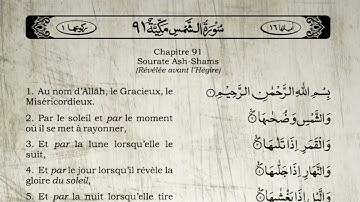 سُوْرَةُ الشَّمْسِ مَكِّيَّةٌ ٩١
Chapitre 91
Sourate Ash-Shams
(Révélée avant l'Hégire)
1. Au nom d'Allāh, le Gracieux, le
Miséricordieux.
2. Par le soleil et par le moment
où il se met à rayonner,
3. Et par la lune lorsqu'elle le
suit,
4. Et par le jour lorsqu'il révèle la
gloire du soleil,
5. Et par la nuit lorsqu'elle tire
بِسْمِ اللّٰهِ الرَّحْمٰنِ الرَّحِيْمِ
وَالشَّمْسِ وَضُحٰىهَا
وَالْقَمَرِ اِذَا تَلٰىهَا
وَالنَّهَارِ اِذَا جَلّٰىهَا
وَالَّيْلِ اِذَا يَغْشٰىهَا